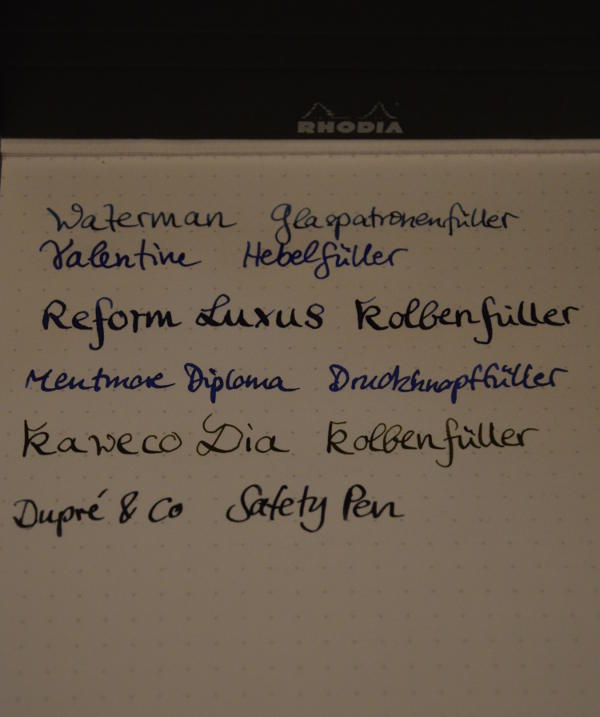 RHODIA
Waterman Glaspatronenfüller
Valentine Hebelfüller
Reform Luxus Kolbenfüller
Mentmore Diploma Druckknopffüller
Kaweco Dia Kolbenfüller
Dupré & Co Safety Pen